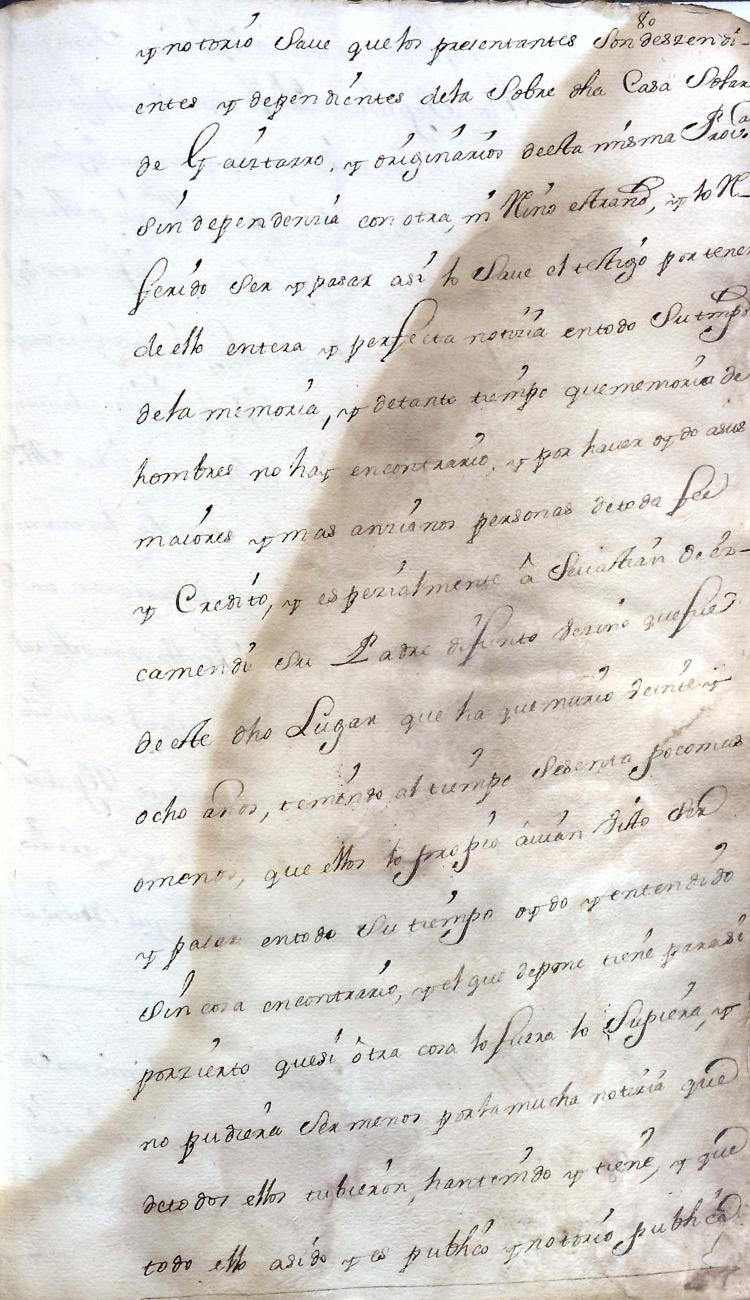 80
y notorio Save que los presentantes Son deszendi-
entes y dependientes dela Sobre dha Casa Solar
de Lyaiztarro, y originarios de esta misma Prov.ª
Sin dependenzia con otra, ni Reino estraño, y lo Re
ferido Ser y pasar asi lo Save el testigo por tener
de ello entera y perfecta notizia en todo Su tmpo
dela memoria, y detanto tiempo que memoria de
hombres no hay encontrario, y por haver oydo asus
maiores y mas anzianos personas detoda fee
y Credito, y espezialmente â Sevastian de
camendi su Padre difunto vezino que fue
de este dho Lugar que ha que murio veinte y
ocho años, teniendo al tiempo Sesenta poco mas
omenos, que ellos lo propio avian visto Ser
y pasar entodo Su tiempo oydo y entendido
Sin cosa encontrario, y el que depone tiene parasi
porzierto quesi ôtra cosa lo fuera lo Supiera, y
no pudiera Ser menos por la mucha notizia que
detodos ellos tubieron, hantenido y tiene, y que
todo ello asido y es publico y notorio publica